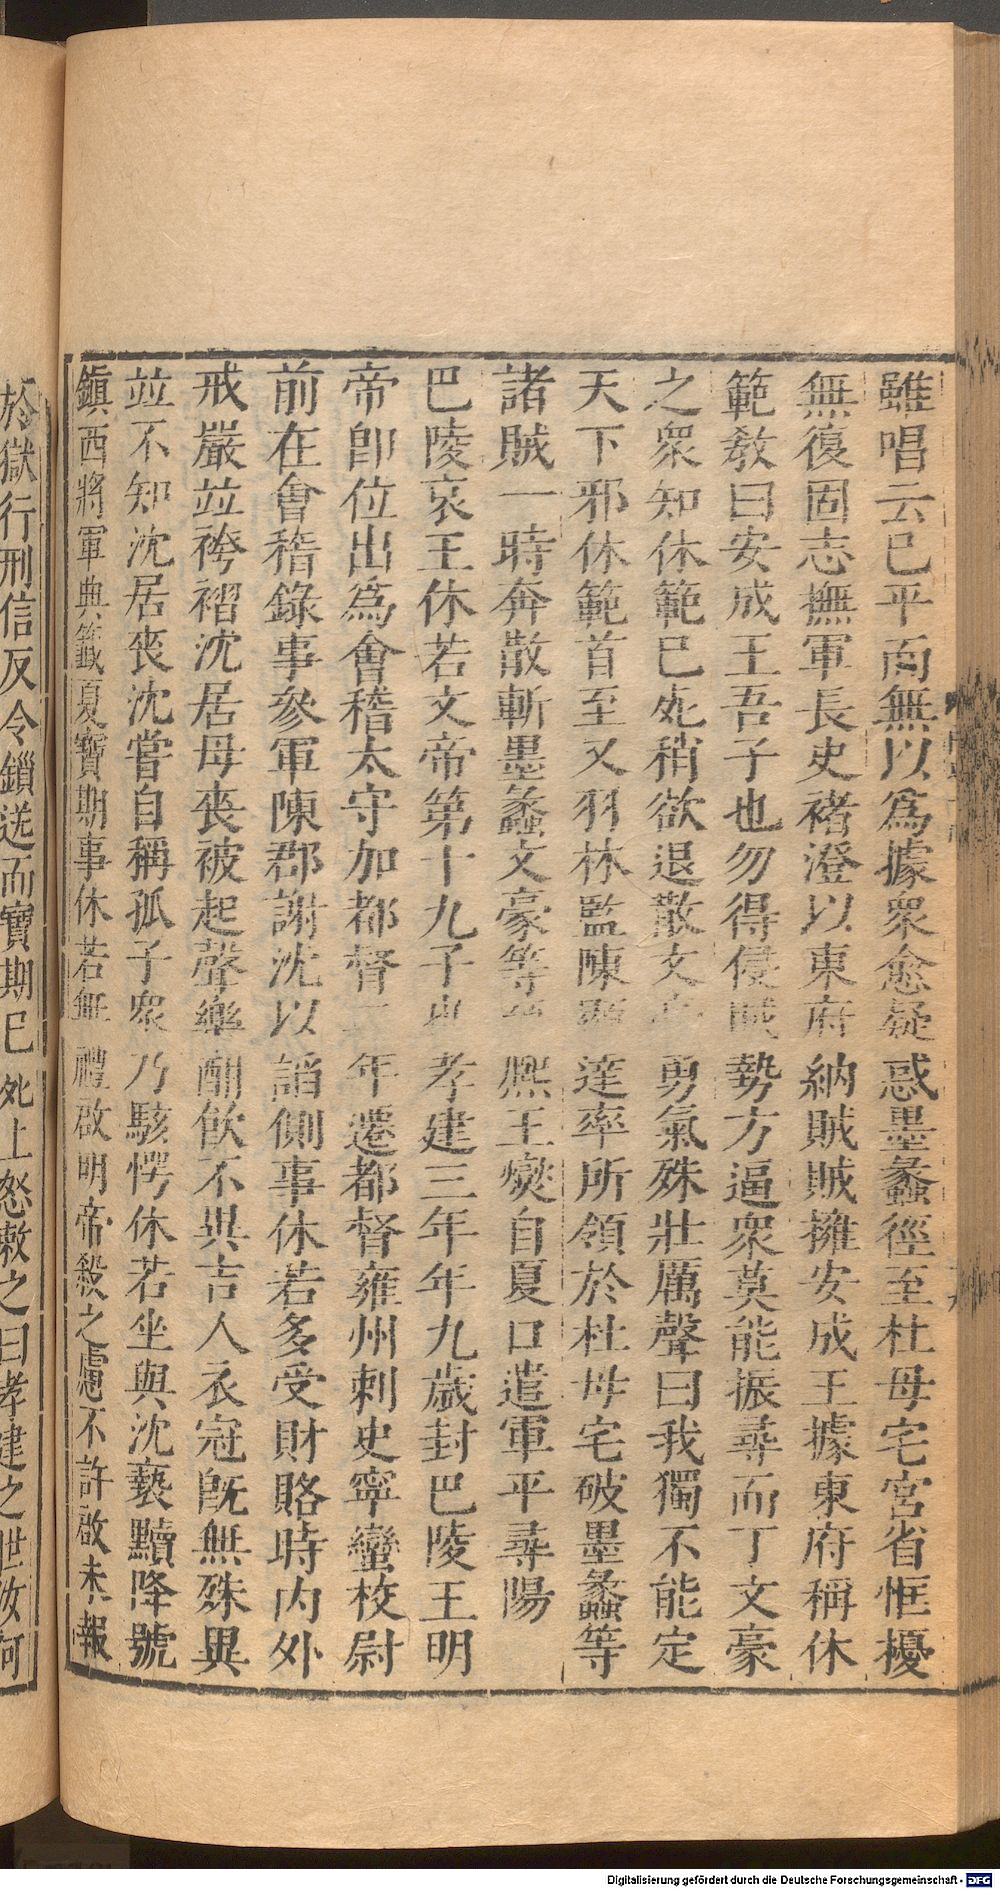 雖唱云已平而無以爲據衆愈疑惑墨蠡徑至杜母宅宮省恇擾
無復固志撫軍長史褚澄以東府納賊賊擁安成王據東府稱休
範敎曰安成王吾子也勿得侵賊勢方逼衆莫能振尋而丁文豪
之衆知休範已死稍欲退散文勇氣殊壯厲聲曰我獨不能定
天下邪休範首至又羽林監陳顯達率所領於杜母宅破墨蠡等
諸賊一時奔散斬墨蠡文豪等晉熙王燮自夏口遣軍平尋陽
巴陵哀王休若文帝第十九子也孝建三年年九歲封巴陵王明
帝卽位出爲會稽太守加都督二年遷都督雍州刺史寧蠻校尉
前在會稽錄事參軍陳郡謝沈以諂側事休若多受財賂時內外
戒嚴竝袴褶沈居母喪被起聲樂酣飮不異吉人衣冠旣無殊異
竝不知沈居喪沈嘗自稱孤子衆乃駭愕休若坐與沈褻黷降號
鎭西將軍典籤夏寶期事休若無禮啟明帝殺之慮不許啟未報
於獄行刑信反令鎖送而寶期已死上怒敕之曰孝建之世汝何
Digitalisierung gefördert durch die Deutsche Forschungsgemeinschaft - DFG